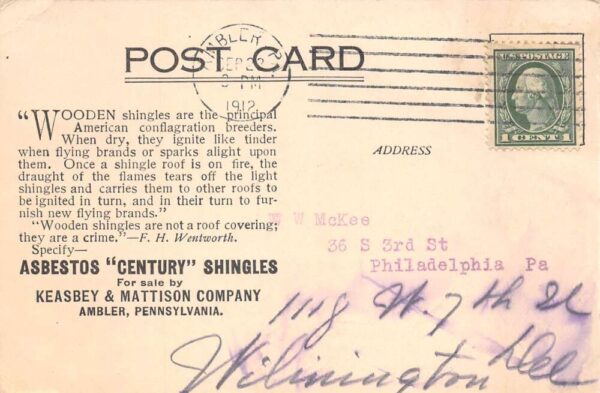 POST CARD
AMBLER
SEP 22
PM
1912
U.S. POSTAGE
1 CENT 1
"WOODEN shingles are the principal
American conflagration breeders.
When dry, they ignite like tinder
when flying brands or sparks alight upon
them. Once a shingle roof is on fire, the
draught of the flames tears off the light
shingles and carries them to other roofs to
be ignited in turn, and in their turn to fur-
nish new flying brands."
"Wooden shingles are not a roof covering;
they are a crime."—F. H. Wentworth.
Specify—
ASBESTOS "CENTURY" SHINGLES
For sale by
KEASBEY & MATTISON COMPANY
AMBLER, PENNSYLVANIA.
ADDRESS
W W McKee
36 S 3rd St
Philadelphia Pa
1118 W. 7th St
Wilmington Del